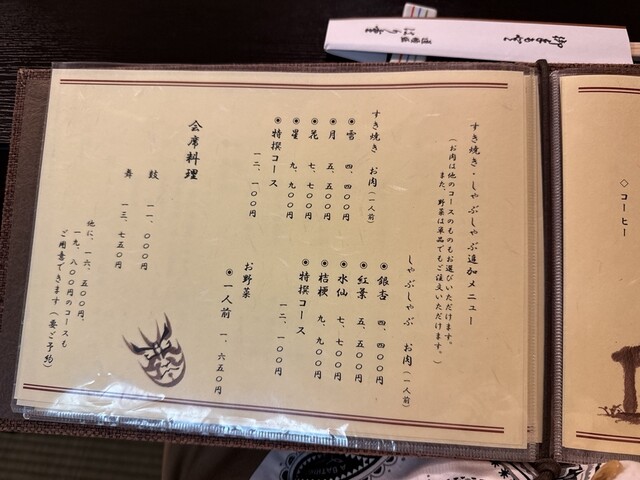 すき焼き・しゃぶしゃぶ追加メニュー
(お肉は他のコースのものもお選びいただけます。
また、野菜は単品でもご注文いただけます。)
すき焼き お肉(一人前)
◉雪 四、四〇〇円
◉月 五、五〇〇円
◉花 七、七〇〇円
◉星 九、九〇〇円
◉特撰コース
一二、一〇〇円
しゃぶしゃぶ お肉(一人前)
◉銀杏 四、四〇〇円
◉紅葉 五、五〇〇円
◉水仙 七、七〇〇円
◉桔梗 九、九〇〇円
◉特撰コース
一二、一〇〇円
お野菜
◉一人前 一、六五〇円
会席料理
鼓 一一、〇〇〇円
舞 一三、七五〇円
他に、一六、五〇〇円、
一九、八〇〇円のコースも
ご用意できます(要ご予約)
◇コーヒー